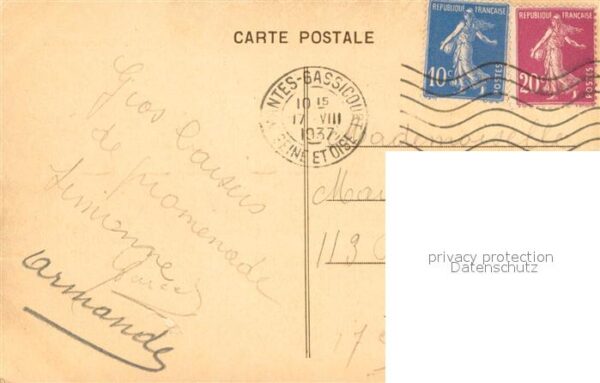 CARTE POSTALE
REPUBLIQUE FRANÇAISE
10c
POSTES
REPUBLIQUE FRANÇAISE
20c
POSTES
MANTES-GASSICOURT
10 15
17 VIII
1937
SEINE ET OISE
Gros baisers
de promenade
Simonne
Armande
Mademoiselle
113
privacy protection
Datenschutz